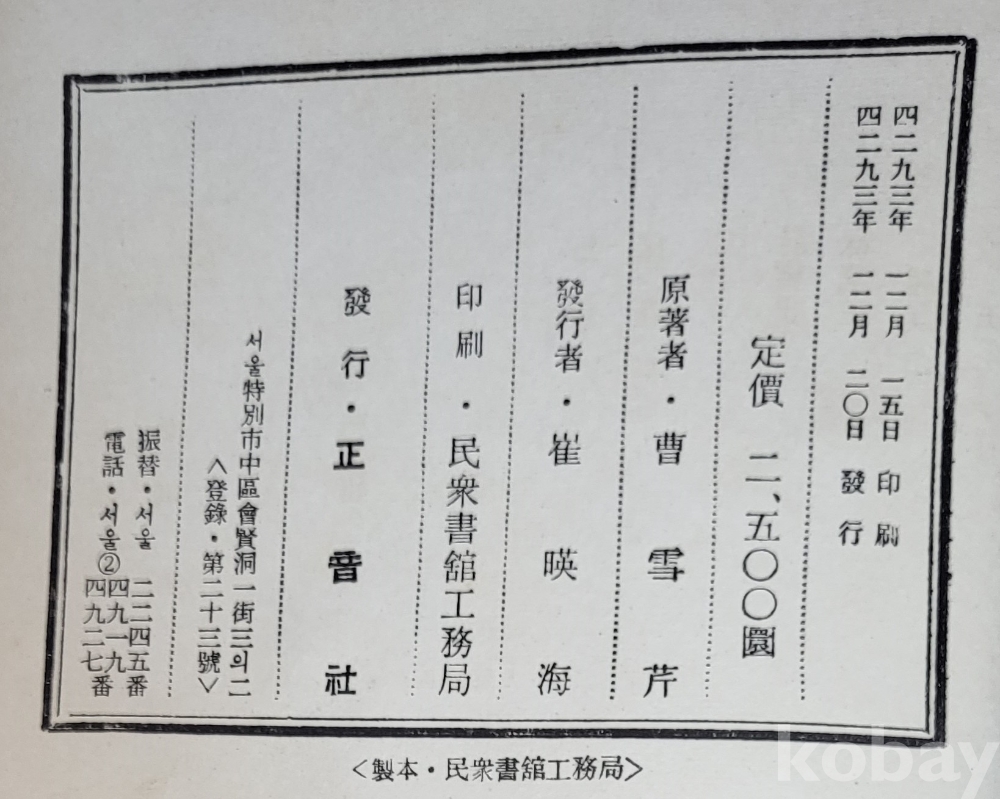 四二九三年 一二月 一五日 印刷
四二九三年 一二月 二〇日 發行
定價 二、五〇〇圜
原著者・曹雪芹
發行者・崔暎海
印刷・民衆書舘工務局
發行・正音社
서울特別市中區會賢洞一街三의二
<登錄・第二十三號>
振替・서울 二二四五番
電話・서울② 四九一九 四九二七番
<製本・民衆書舘工務局>
kobay